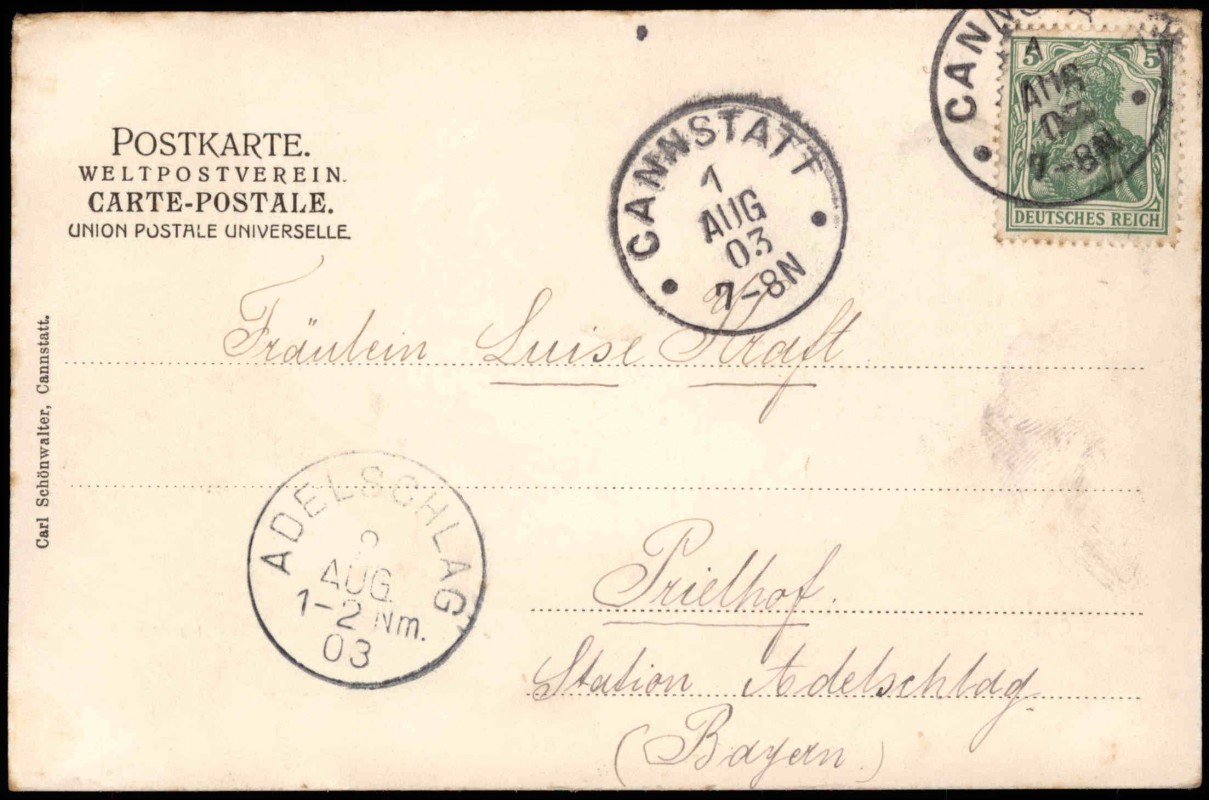 POSTKARTE.
WELTPOSTVEREIN.
CARTE-POSTALE.
UNION POSTALE UNIVERSELLE
CANNSTATT
1
AUG
03
7-8N
5 5
DEUTSCHES REICH
1
AUG
03
7-8N
Fräulein Luise Kraft
Carl Schönwalter, Cannstatt.
ADELSCHLAG
AUG.
1-2 Nm.
03
Prielhof.
Station Adelschlag
(Bayern.)